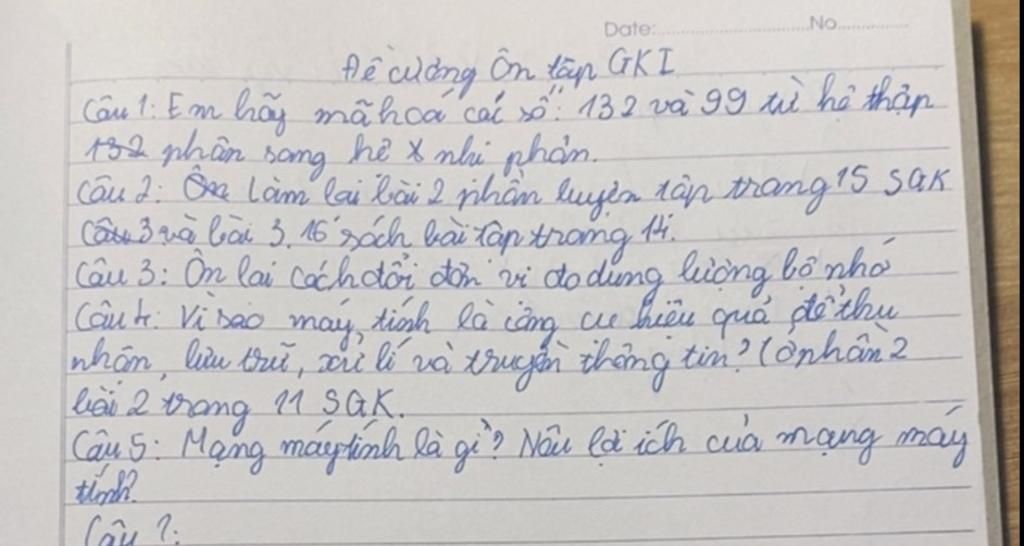 Date: No
Đề cương Ôn tập GKI
Câu 1: Em hãy mã hoá các số: 132 và 99 từ hệ thập
132 phân sang hệ nhị phân.
Câu 2: Làm lại bài 2 phần luyện tập trang 15 SGK
Câu 3 và bài 3.16 sách bài tập trang 14.
Câu 3: Ôn lại cách đổi đơn vị đo dung lượng bộ nhớ
Câu 4: Vì sao máy tính là công cụ hiệu quả để thu
nhận, lưu trữ, xử lí và truyền thông tin? (Ở phần 2
bài 2 trang 11 SGK.
Câu 5: Mạng máy tính là gì? Nêu lợi ích của mạng máy
tính?
Câu ?: